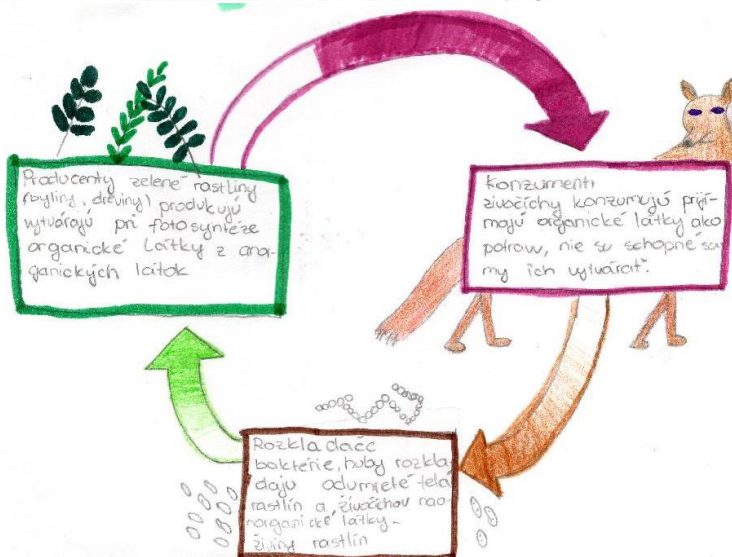 Producenty zelené rastliny
(byliny, dreviny) produkujú
vytvárajú pri fotosyntéze
organické látky z anor-
ganických látok
Konzumenti
živočíchy konzumujú prijí-
majú organické látky ako
potravu, nie sú schopné sa
my ich vytvárať.
Rozkladače
baktérie, huby rozkla
dajú odumreté telá
rastlín a živočíchov na
anorganické látky-
živiny rastlín